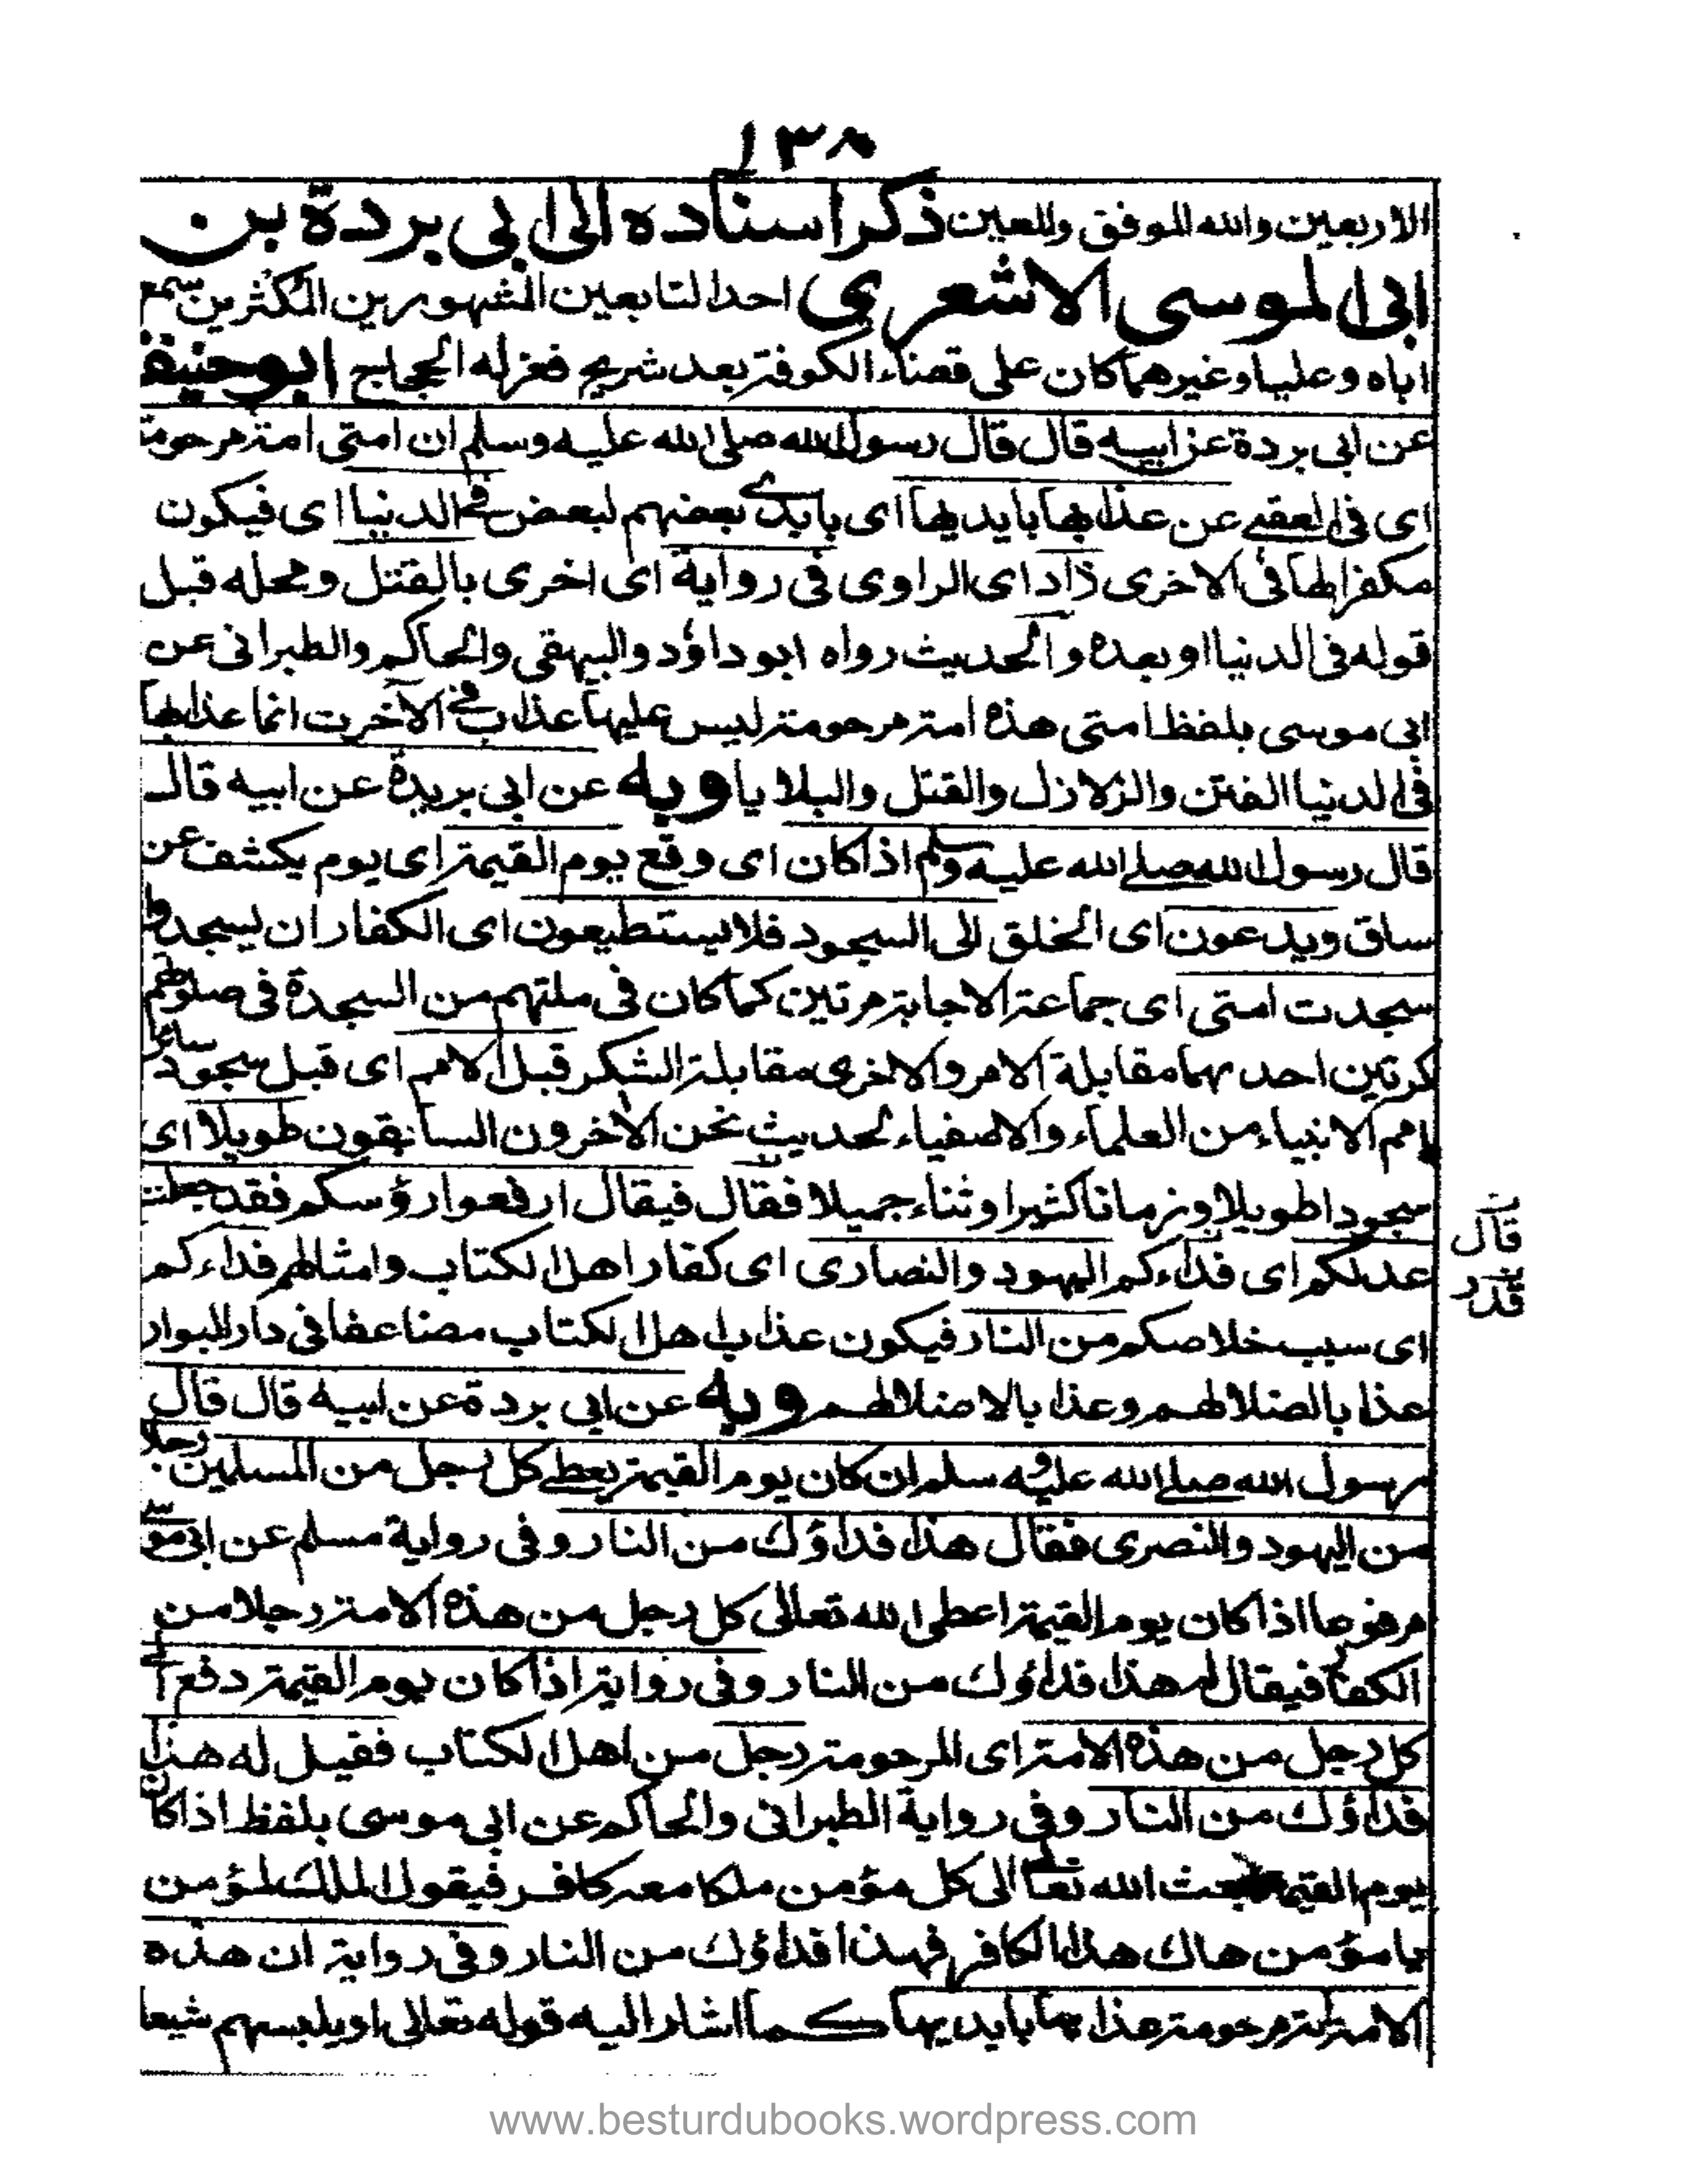 ١٣٨
الاربعين والله الموفق والمعين ذكر اسناده الى ابى بردة بن
ابى الموسى الاشعرى احد التابعين المشهورين المكثرين سمع
اباه وعليا وغيرهما كان على قضاء الكوفة بعد شريح فعزله الحجاج ابوحنيفة
عن ابى بردة عن ابيه قال قال رسول الله صلى الله عليه وسلم ان امتى امة مرحومة
اى فى العقبے عن عذابها بايديها اى بايدے بعضهم لبعض فى الدنيا اى فيكون
مكفرا لها فى الاخرى زاد اى الراوى فى رواية اى اخرى بالقتل ومحله قبل
قوله فى الدنيا او بعده والحديث رواه ابو داؤد والبيهقى والحاكم والطبرانى عن
ابى موسى بلفظ امتى هذه امة مرحومة ليس عليها عذاب فى الآخرت انما عذابها
فى الدنيا الفتن والزلازل والقتل والبلايا وبه عن ابى بريدة عن ابيه قال
قال رسول الله صلے الله عليه وسلم اذا كان اى وقع يوم القيمة اى يوم يكشف عن
ساق ويدعون اى الخلق الى السجود فلا يستطيعون اى الكفار ان يسجدوا
سجدت امتى اى جماعة الاجابة مرتين كما كان فى ملتهم من السجدة فى صلوتهم
كرتين احدىهما مقابلة الامر والاخرى مقابلة الشكر قبل الامم اى قبل سجود سائر
امم الانبياء من العلماء والاصفياء لحديث نحن الآخرون السابقون طويلا اى
سجودا طويلا وزمانا كثيرا وثناء جميلا فقال فيقال ارفعوا رؤسكم فقد جعلت
عدلكم اى فداءكم اليهود والنصارى اى كفار اهل الكتاب وامثالهم فداءكم
قال
قدر
اى سبب خلاصكم من النار فيكون عذاب اهل الكتاب مضاعفا فى دار البوار
عذابا لضلالهم وعذابا لاضلالهم وبه عن ابى بردة عن ابيه قال قال
رسول الله صلے الله عليه وسلم ان كان يوم القيمة يعطے كل رجل من المسلمين رجلا
من اليهود والنصرى فقال هذا فداؤك من النار وفى رواية مسلم عن ابى موسى
مرفوعا اذا كان يوم القيمة اعطى الله تعالى كل رجل من هذه الامة رجلا من
الكفار فيقال له هذا فداؤك من النار وفى رواية اذا كان يوم القيمة دفع الى
كل رجل من هذه الامة اى المرحومة رجل من اهل الكتاب فقيل له هذا
فداؤك من النار وفى رواية الطبرانى والحاكم عن ابى موسى بلفظ اذا كان
يوم القيمة بعث الله تعالى الى كل مؤمن ملكا معه كافر فيقول الملك للمؤمن
يا مؤمن هاك هذا الكافر فهذا فداؤك من النار وفى رواية ان هذه
الامة امة مرحومة عذابها بايديها كما اشار اليه قوله تعالى او يلبسهم شيعا
www.besturdubooks.wordpress.com